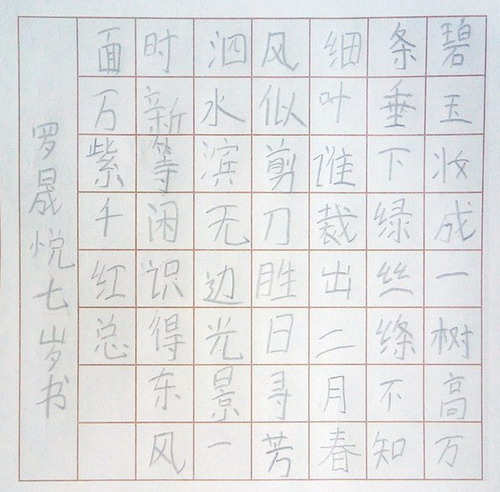 碧玉妆成一树高万
条垂下绿丝绦不知
细叶谁裁出二月春
风似剪刀胜日寻芳
泗水滨无边光景一
时新等闲识得东风
面万紫千红总
罗晟悦七岁书